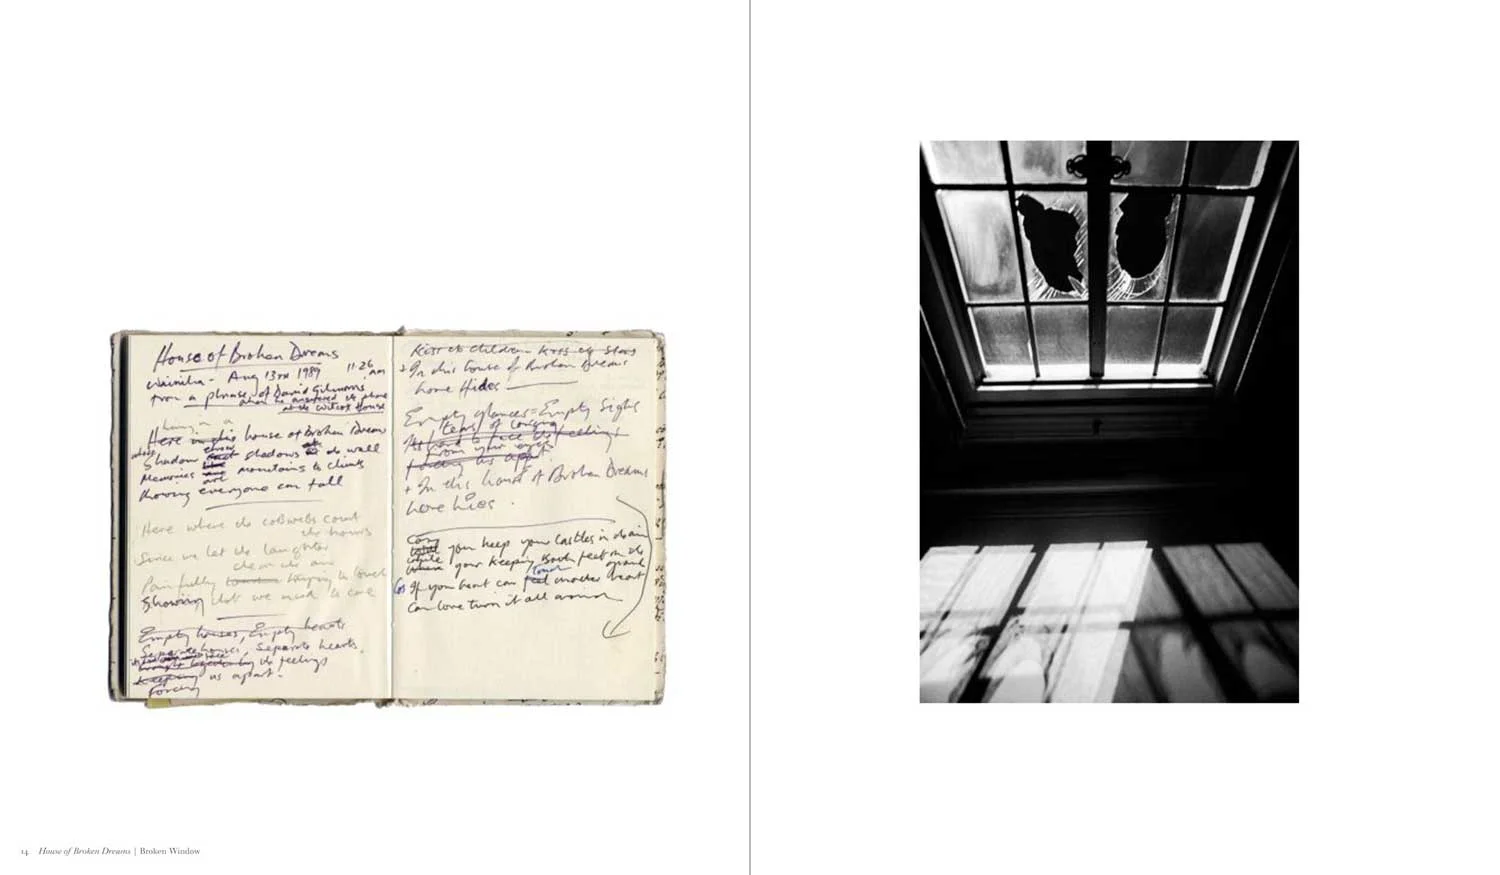 House of Broken Dreams
Wainiha - Aug 13th 1989 11.26 am
from a phrase of David Gilmours
when he answered the phone
at the Wilcox House
Living in a
Here in this house of Broken Dreams
where Shadows throw shadows at the wall
Memories are mountains to climb
Knowing everyone can fall
Here where the cobwebs count
the hours
Since we let the laughter
clear the air
Painfully trying to touch
Showing that we used to care
Empty houses, Empty hearts
Separate houses, separate hearts.
the feelings
Keeping us apart.
Forcing
Kiss the children Kiss the stars
+ In this house of Broken Dreams
love Hides
Empty glances = Empty Sighs
tears of longing
feelings
from your eyes
Forcing us apart.
+ In this house of Broken Dreams
love lies.
Can
you keep your castles in the air
while your keeping both feet on the ground
touch
Cos If your heart can feel another heart
Can love turn it all around
14 House of Broken Dreams | Broken Window